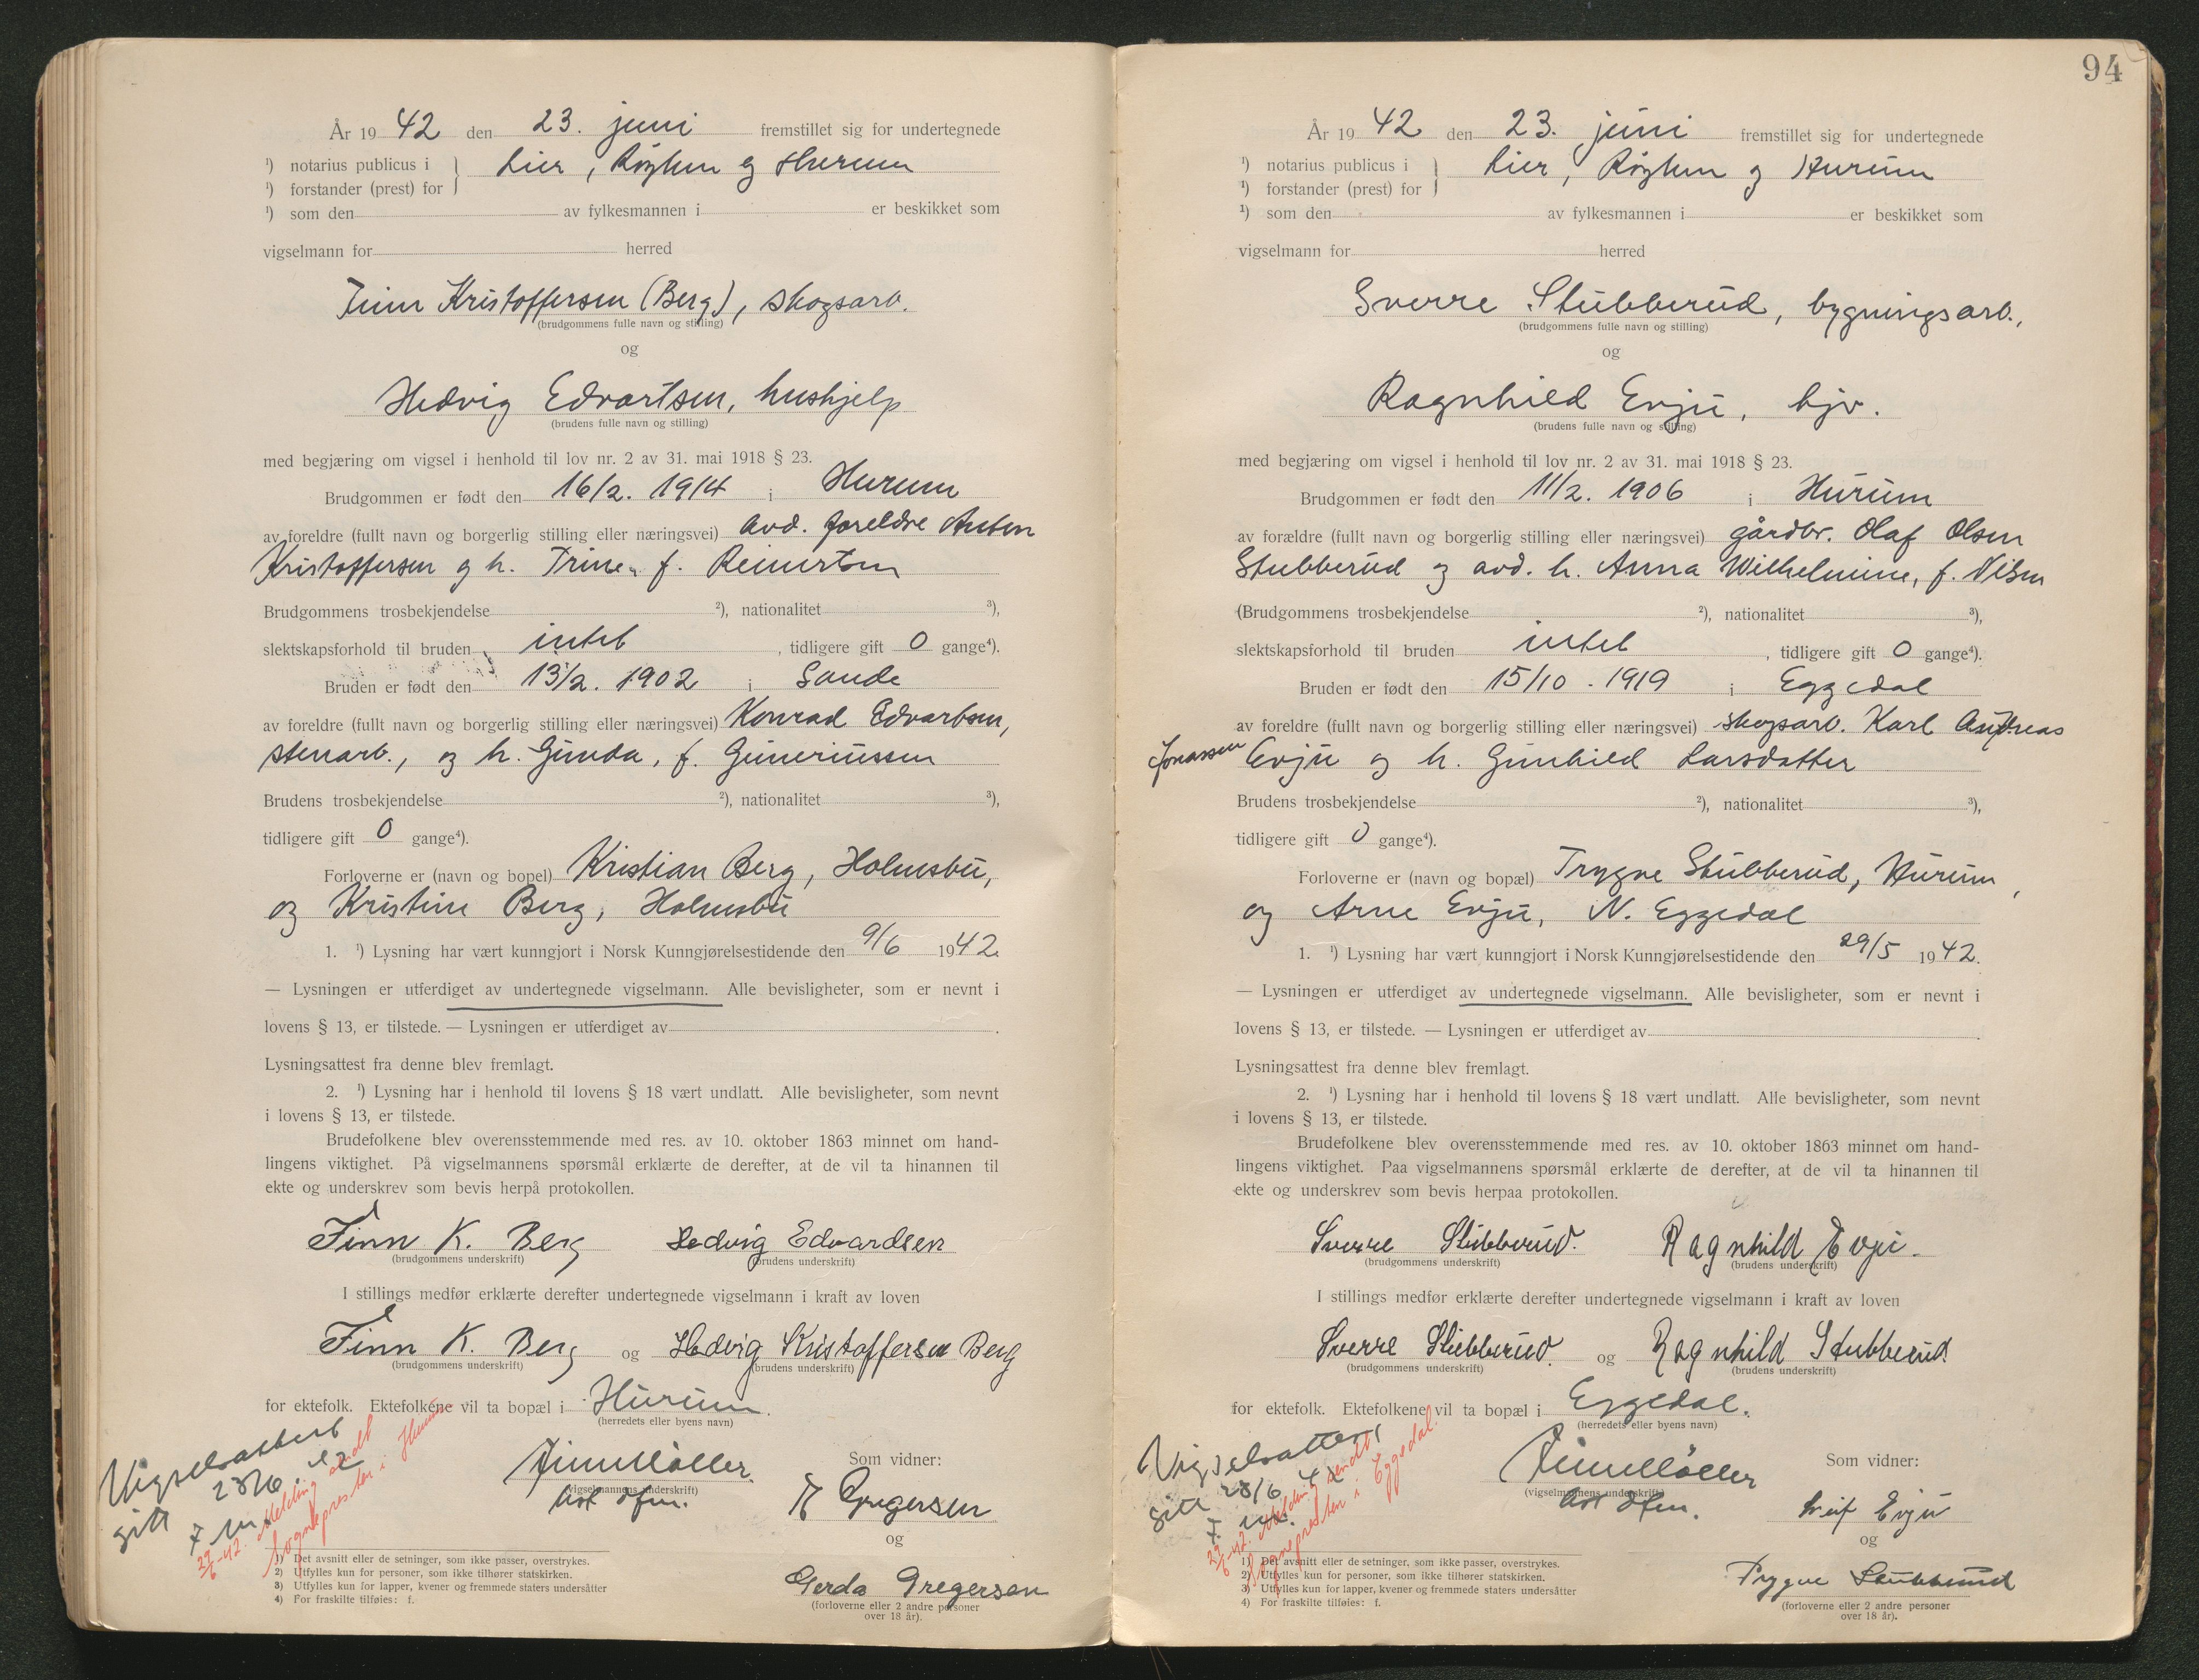 År 1942 den 23. juni fremstillet sig for undertegnede
¹) notarius publicus i } Lier, Røyken og Hurum
¹) forstander (prest) for
¹) som den av fylkesmannen i er beskikket som
vigselmann for herred
Finn Kristoffersen (Berg), skogsarb.
(brudgommens fulle navn og stilling)
og
Hedvig Edvartsen, hushjelp
(brudens fulle navn og stilling)
med begjæring om vigsel i henhold til lov nr. 2 av 31. mai 1918 § 23.
Brudgommen er født den 16/2. 1914 i Hurum
av foreldre (fullt navn og borgerlig stilling eller næringsvei) avd. foreldre Anton
Kristoffersen og h. Trine f. Reinertsen
Brudgommens trosbekjendelse ²), nationalitet ³),
slektskapsforhold til bruden intet, tidligere gift 0 gange⁴).
Bruden er født den 13/2. 1902 i Sande
av foreldre (fullt navn og borgerlig stilling eller næringsvei) Konrad Edvartsen,
stenarb., og h. Gunda, f. Guneriussen
Brudens trosbekjendelse ²), nationalitet ³),
tidligere gift 0 gange⁴).
Forloverne er (navn og bopel) Kristian Berg, Holmsbu,
og Kristine Berg, Holmsbu
1. ¹) Lysning har vært kunngjort i Norsk Kunngjørelsestidende den 9/6 1942.
— Lysningen er utferdiget av undertegnede vigselmann. Alle bevisligheter, som er nevnt i
lovens § 13, er tilstede. — Lysningen er utferdiget av .
Lysningsattest fra denne blev fremlagt.
2. ¹) Lysning har i henhold til lovens § 18 vært undlatt. Alle bevisligheter, som nevnt
i lovens § 13, er tilstede.
Brudefolkene blev overensstemmende med res. av 10. oktober 1863 minnet om hand-
lingens viktighet. På vigselmannens spørsmål erklærte de derefter, at de vil ta hinannen til
ekte og underskrev som bevis herpå protokollen.
Finn K. Berg Hedvig Edvardsen
(brudgommens underskrift) (brudens underskrift)
I stillings medfør erklærte derefter undertegnede vigselmann i kraft av loven
Finn K. Berg og Hedvig Kristoffersen Berg
(brudgommens underskrift) (brudens underskrift)
for ektefolk. Ektefolkene vil ta bopæl i Hurum.
(herredets eller byens navn)
Vigselsattest
gitt 23/6 42
29/6-42. Melding sendt
Sognepresten i Hurum
(vigselmannens underskrift)
Som vidner:
Gregersen
og
Gerda Gregersen
(forloverne eller 2 andre personer
over 18 år).
1) Det avsnitt eller de setninger, som ikke passer, overstrykes.
2) Utfylles kun for personer, som ikke tilhører statskirken.
3) Utfylles kun for lapper, kvener og fremmede staters undersåtter
4) For fraskilte tilføies: f.
94
År 1942 den 23. juni fremstillet sig for undertegnede
¹) notarius publicus i } Lier, Røyken og Hurum
¹) forstander (prest) for
¹) som den av fylkesmannen i er beskikket som
vigselmann for herred
Sverre Stubberud, bygningsarb.,
(brudgommens fulle navn og stilling)
og
Ragnhild Evju, hjv.
(brudens fulle navn og stilling)
med begjæring om vigsel i henhold til lov nr. 2 av 31. mai 1918 § 23.
Brudgommen er født den 11/2. 1906 i Hurum
av forældre (fullt navn og borgerlig stilling eller næringsvei) gårdbr. Olaf Olsen
Stubberud og avd. h. Anna Wilhelmine, f. Nilsen
(Brudgommens trosbekjendelse ²), nationalitet ³),
slektskapsforhold til bruden intet, tidligere gift 0 gange⁴).
Bruden er født den 15/10. 1919 i Eggedal
av foreldre (fullt navn og borgerlig stilling eller næringsvei) skogsarb. Karl Andreas
Jonassen Evju og h. Gunhild Larsdatter
Brudens trosbekjendelse ²), nationalitet ³),
tidligere gift 0 gange⁴).
Forloverne er (navn og bopæl) Trygve Stubberud, Hurum,
og Arne Evju, N. Eggedal
1. ¹) Lysning har vært kunngjort i Norsk Kunngjørelsestidende den 29/5 1942.
— Lysningen er utferdiget av undertegnede vigselmann. Alle bevisligheter, som er nevnt i
lovens § 13, er tilstede. — Lysningen er utferdiget av .
Lysningsattest fra denne blev fremlagt.
2. ¹) Lysning har i henhold til lovens § 18 vært undlatt. Alle bevisligheter, som nevnt
i lovens § 13, er tilstede.
Brudefolkene blev overensstemmende med res. av 10. oktober 1863 minnet om hand-
lingens viktighet. Paa vigselmannens spørsmål erklærte de derefter, at de vil ta hinannen til
ekte og underskrev som bevis herpaa protokollen.
Sverre Stubberud. Ragnhild Evju.
(brudgommens underskrift) (brudens underskrift)
I stillings medfør erklærte derefter undertegnede vigselmann i kraft av loven
Sverre Stubberud. og Ragnhild Stubberud
(brudgommens underskrift) (brudens underskrift)
for ektefolk. Ektefolkene vil ta bopæl i Eggedal.
(herredets eller byens navn)
Vigselsattest
gitt 23/6 42
29/6-42. Melding sendt
Sognepresten i Eggedal
(vigselmannens underskrift)
Som vidner:
Leif Evju
og
Trygve Stubberud
(forloverne eller 2 andre personer
over 18 år).
1) Det avsnitt eller de setninger, som ikke passer, overstrykes.
2) Utfylles kun for personer, som ikke tilhører statskirken.
3) Utfylles kun for lapper, kvener og fremmede staters undersåtter
4) For fraskilte tilføies: f.